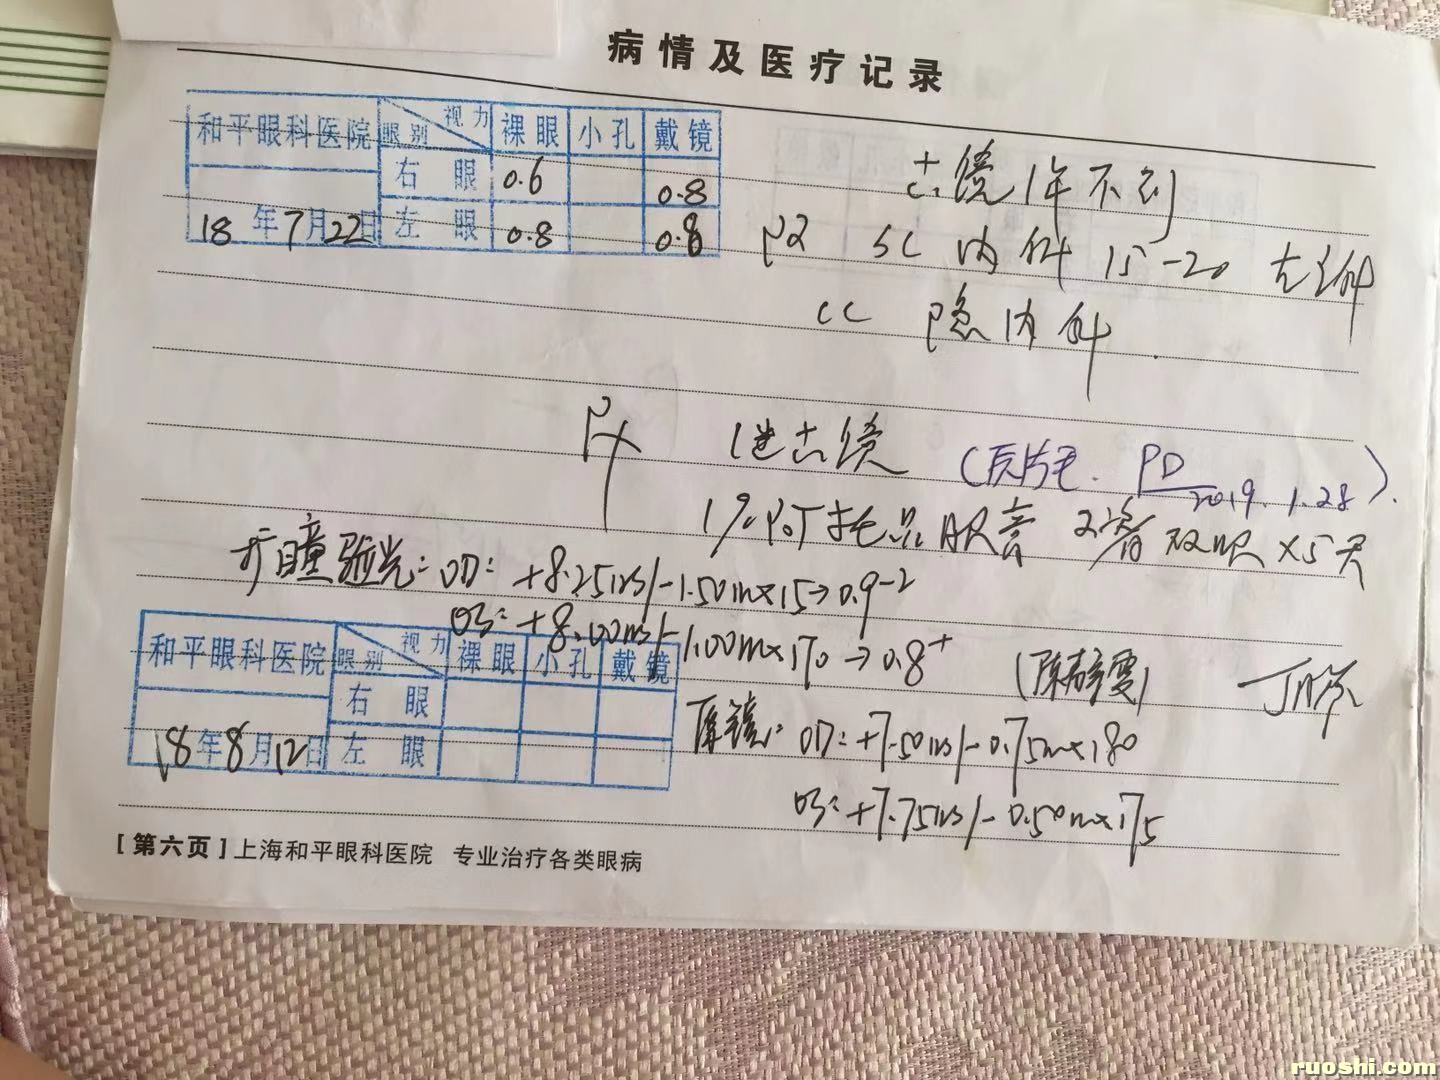 病情及医疗记录
和平眼科医院 眼别 视力 裸眼 小孔 戴镜
右眼 0.6 0.8
18年7月22日 左眼 0.8 0.8
镜1年不到
SC 内斜 15-20 左
CC 隐内斜
镜 (PD 2019.1.28).
1% 阿托品眼膏 双眼×5天
扩瞳验光: OD: +8.25DS/-1.50DC×15→0.9-2
OS: +8.00DS/-1.00DC×170→0.8+
和平眼科医院 眼别 视力 裸眼 小孔 戴镜
右眼
18年8月12日 左眼
原镜: OD: +7.50DS/-0.75DC×180
OS: +7.75DS/-0.50DC×175
[第六页]上海和平眼科医院 专业治疗各类眼病
ruoshi.com